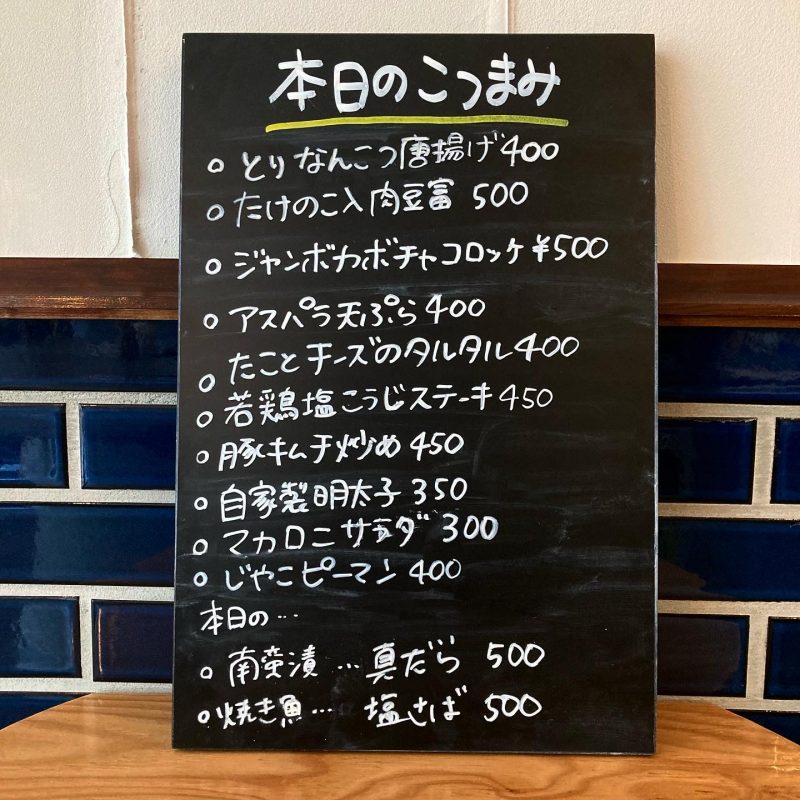 本日のこつまみ
○ とりなんこつ唐揚げ 400
○ たけのこ入肉豆富 500
○ ジャンボカボチャコロッケ ¥500
○ アスパラ天ぷら 400
○ たことチーズのタルタル 400
○ 若鶏塩こうじステーキ 450
○ 豚キムチ炒め 450
○ 自家製明太子 350
○ マカロニサラダ 300
○ じゃこピーマン 400
本日の…
○ 南蛮漬 … 真だら 500
○ 焼き魚 … 塩さば 500